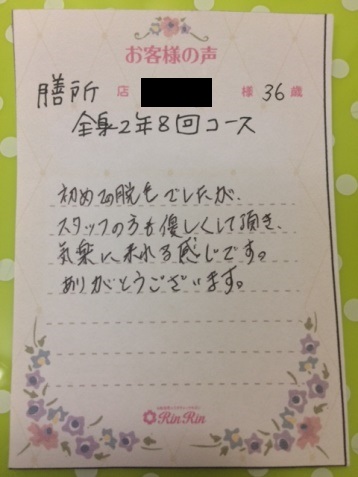 お客様の声
膳所 店 様 36歳
全身2年8回コース
初めての脱毛でしたが、
スタッフの方も優しくして頂き、
気楽に来れる感じです。
ありがとうございます。
RinRin